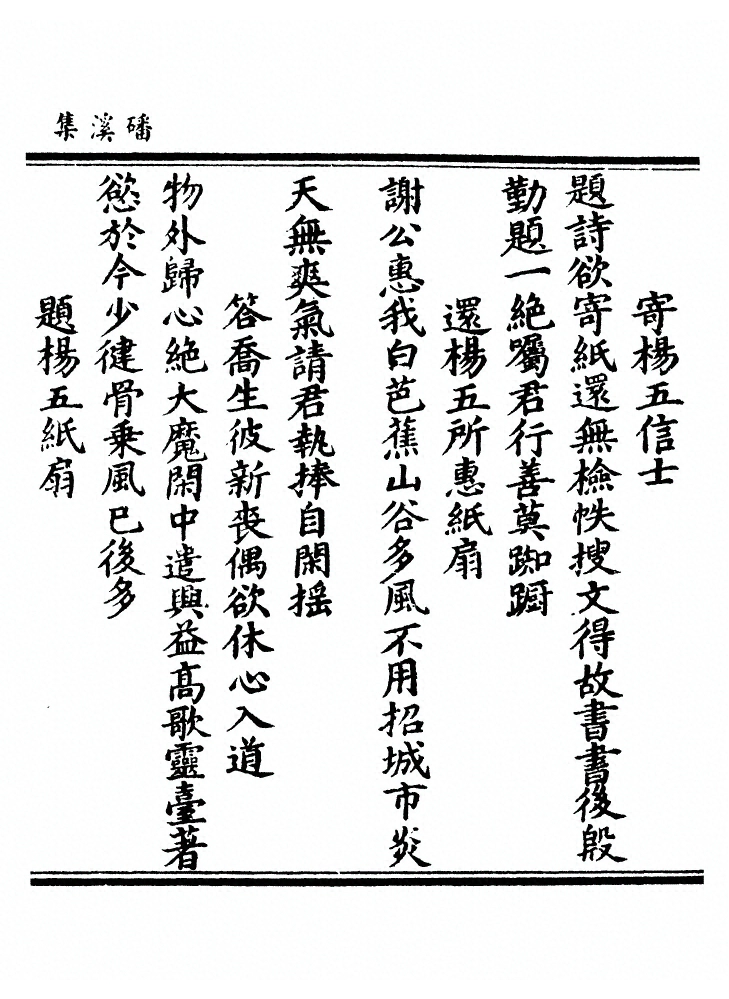 磻溪集
寄楊五信士
題詩欲寄紙還無檢帙搜文得故書書後殷
勤題一絶囑君行善莫踟蹰
還楊五所惠紙扇
謝公惠我白芭蕉山谷多風不用招城市炎
天無爽氣請君執捧自閑摇
答喬生彼新喪偶欲休心入道
物外歸心絶大魔閑中遣興益高歌靈臺著
慾於今少健骨乗風已後多
題楊五紙扇